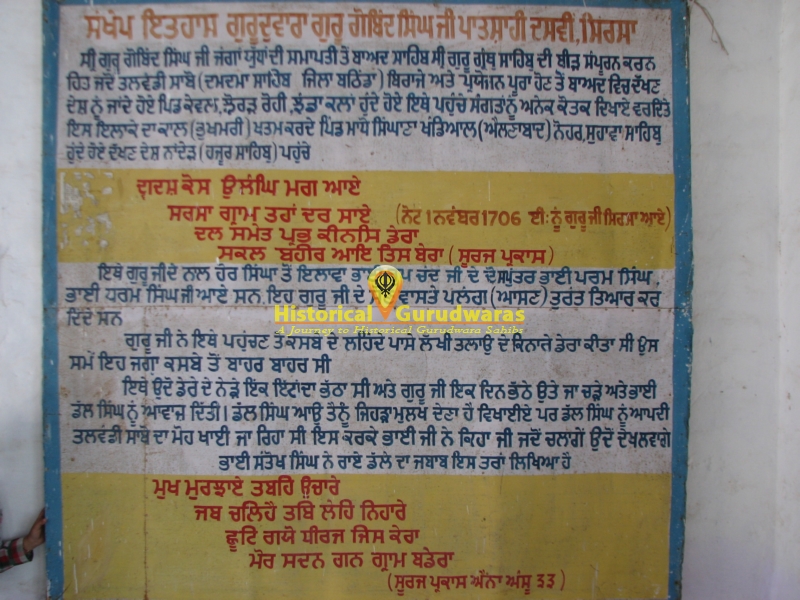 ਸੰਖੇਪ ਇਤਹਾਸ ਗੁਰਦੁਵਾਰਾ ਗੁਰੂ ਗੋਬਿੰਦ ਸਿੰਘ ਜੀ ਪਾਤਸ਼ਾਹੀ ਦਸਵੀਂ, ਸਿਰਸਾ
ਸ੍ਰੀ ਗੁਰੂ ਗੋਬਿੰਦ ਸਿੰਘ ਜੀ ਜੰਗਾਂ ਯੁੱਧਾਂ ਦੀ ਸਮਾਪਤੀ ਤੋਂ ਬਾਅਦ ਸਾਹਿਬ ਸ੍ਰੀ ਗੁਰੂ ਗ੍ਰੰਥ ਸਾਹਿਬ ਦੀ ਬੀੜ ਸੰਪੂਰਨ ਕਰਨ
ਹਿਤ ਜਦੋਂ ਤਲਵੰਡੀ ਸਾਬੋ (ਦਮਦਮਾ ਸਾਹਿਬ ਜਿਲਾ ਬਠਿੰਡਾ) ਬਿਰਾਜੇ ਅਤੇ ਪ੍ਰਯੋਜਨ ਪੂਰਾ ਹੋਣ ਤੋਂ ਬਾਅਦ ਵਿਚ ਦੱਖਣ
ਦੇਸ਼ ਨੂੰ ਜਾਂਦੇ ਹੋਏ ਪਿੰਡ ਕੇਵਲ, ਝੋਰੜ ਰੋਹੀ, ਝੰਡਾ ਕਲਾਂ ਹੁੰਦੇ ਹੋਏ ਇਥੇ ਪਹੁੰਚੇ ਸੰਗਤਾਂ ਨੂੰ ਅਨੇਕ ਕੌਤਕ ਦਿਖਾਏ ਵਰਦਿੱਤੇ
ਇਸ ਇਲਾਕੇ ਦਾ ਕਾਲ (ਭੁਖਮਰੀ) ਖਤਮ ਕਰਦੇ ਪਿੰਡ ਮਾਧੋ ਸਿੰਘਾਣਾ ਖੰਡਿਆਲ (ਐਲਨਾਬਾਦ) ਨੋਹਰ, ਸੁਹਾਵਾ ਸਾਹਿਬ
ਹੁੰਦੇ ਹੋਏ ਦੱਖਣ ਦੇਸ਼ ਨਾਂਦੇੜ (ਹਜ਼ੂਰ ਸਾਹਿਬ) ਪਹੁੰਚੇ
ਦ੍ਵਾਦਸ਼ ਕੋਸ ਉਲੰਘਿ ਮਗ ਆਏ
ਸਰਸਾ ਗ੍ਰਾਮ ਤਹਾਂ ਦਰ ਸਾਏ (ਨੋਟ 1 ਨਵੰਬਰ 1706 ਈ: ਨੂੰ ਗੁਰੂ ਜੀ ਸਿਰਸਾ ਆਏ)
ਦਲ ਸਮੇਤ ਪ੍ਰਭੁ ਕੀਨਸਿ ਡੇਰਾ
ਸਕਲ ਬਹੀਰ ਆਇ ਤਿਸ ਬੇਰਾ (ਸੂਰਜ ਪ੍ਰਕਾਸ)
ਇਥੇ ਗੁਰੂ ਜੀ ਦੇ ਨਾਲ ਹੋਰ ਸਿੰਘਾ ਤੋਂ ਇਲਾਵਾ ਭਾਈ ਚੰਦ ਜੀ ਦੇ ਦੋ ਸਪੁੱਤਰ ਭਾਈ ਪਰਮ ਸਿੰਘ,
ਭਾਈ ਧਰਮ ਸਿੰਘ ਜੀ ਆਏ ਸਨ. ਇਹ ਗੁਰੂ ਜੀ ਦੇ ਵਾਸਤੇ ਪਲੰਗ (ਆਸਣ) ਤੁਰੰਤ ਤਿਆਰ ਕਰ
ਦਿੰਦੇ ਸਨ
Historical Gurudwaras
A Journey to Historical Gurudwara Sahibs
ਗੁਰੂ ਜੀ ਨੇ ਇਥੇ ਪਹੁੰਚਣ ਤੇ ਕਸਬੇ ਦੇ ਲਹਿੰਦੇ ਪਾਸੇ ਲੱਖੀ ਤਲਾਉ ਦੇ ਕਿਨਾਰੇ ਡੇਰਾ ਕੀਤਾ ਸੀ ਉਸ
ਸਮੇਂ ਇਹ ਜਗ੍ਹਾ ਕਸਬੇ ਤੋਂ ਬਾਹਰ ਬਾਹਰ ਸੀ
ਇਥੇ ਉਦੋਂ ਡੇਰੇ ਦੇ ਨੇੜੇ ਇੱਕ ਇੱਟਾਂ ਦਾ ਭੱਠਾ ਸੀ ਅਤੇ ਗੁਰੂ ਜੀ ਇਕ ਦਿਨ ਭੱਠੇ ਉਤੇ ਜਾ ਚੜ੍ਹੇ ਅਤੇ ਭਾਈ
ਡੱਲ ਸਿੰਘ ਨੂੰ ਆਵਾਜ਼ ਦਿੱਤੀ। ਡੱਲ ਸਿੰਘ ਆਉ ਤੈਨੂੰ ਜਿਹੜਾ ਮੁਲਖ ਦੇਣਾ ਹੈ ਵਿਖਾਈਏ ਪਰ ਡੱਲ ਸਿੰਘ ਨੂੰ ਆਪਦੀ
ਤਲਵੰਡੀ ਸਾਬੋ ਦਾ ਮੋਹ ਖਾਈ ਜਾ ਰਿਹਾ ਸੀ ਇਸ ਕਰਕੇ ਭਾਈ ਜੀ ਨੇ ਕਿਹਾ ਜੀ ਜਦੋਂ ਚਲਾਂਗੇ ਉਦੋਂ ਦੇਖਲਵਾਂਗੇ
ਭਾਈ ਸੰਤੋਖ ਸਿੰਘ ਨੇ ਰਾਏ ਡੱਲੇ ਦਾ ਜਬਾਬ ਇਸ ਤਰਾਂ ਲਿਖਿਆ ਹੈ
ਮੁਖ ਮੁਰਝਾਏ ਤਬਹਿ ਉਚਾਰੇ
ਜਬ ਚਲਿਹੈ ਤਬਿ ਲੇਹਿੰ ਨਿਹਾਰੇ
ਛੂਟਿ ਗਯੋ ਧੀਰਜ ਜਿਸ ਕੇਰਾ
ਮੋਰ ਸਦਨ ਗਨ ਗ੍ਰਾਮ ਬਡੇਰਾ
(ਸੂਰਜ ਪ੍ਰਕਾਸ ਐਨਾ ਅੰਸੂ ੩੩)